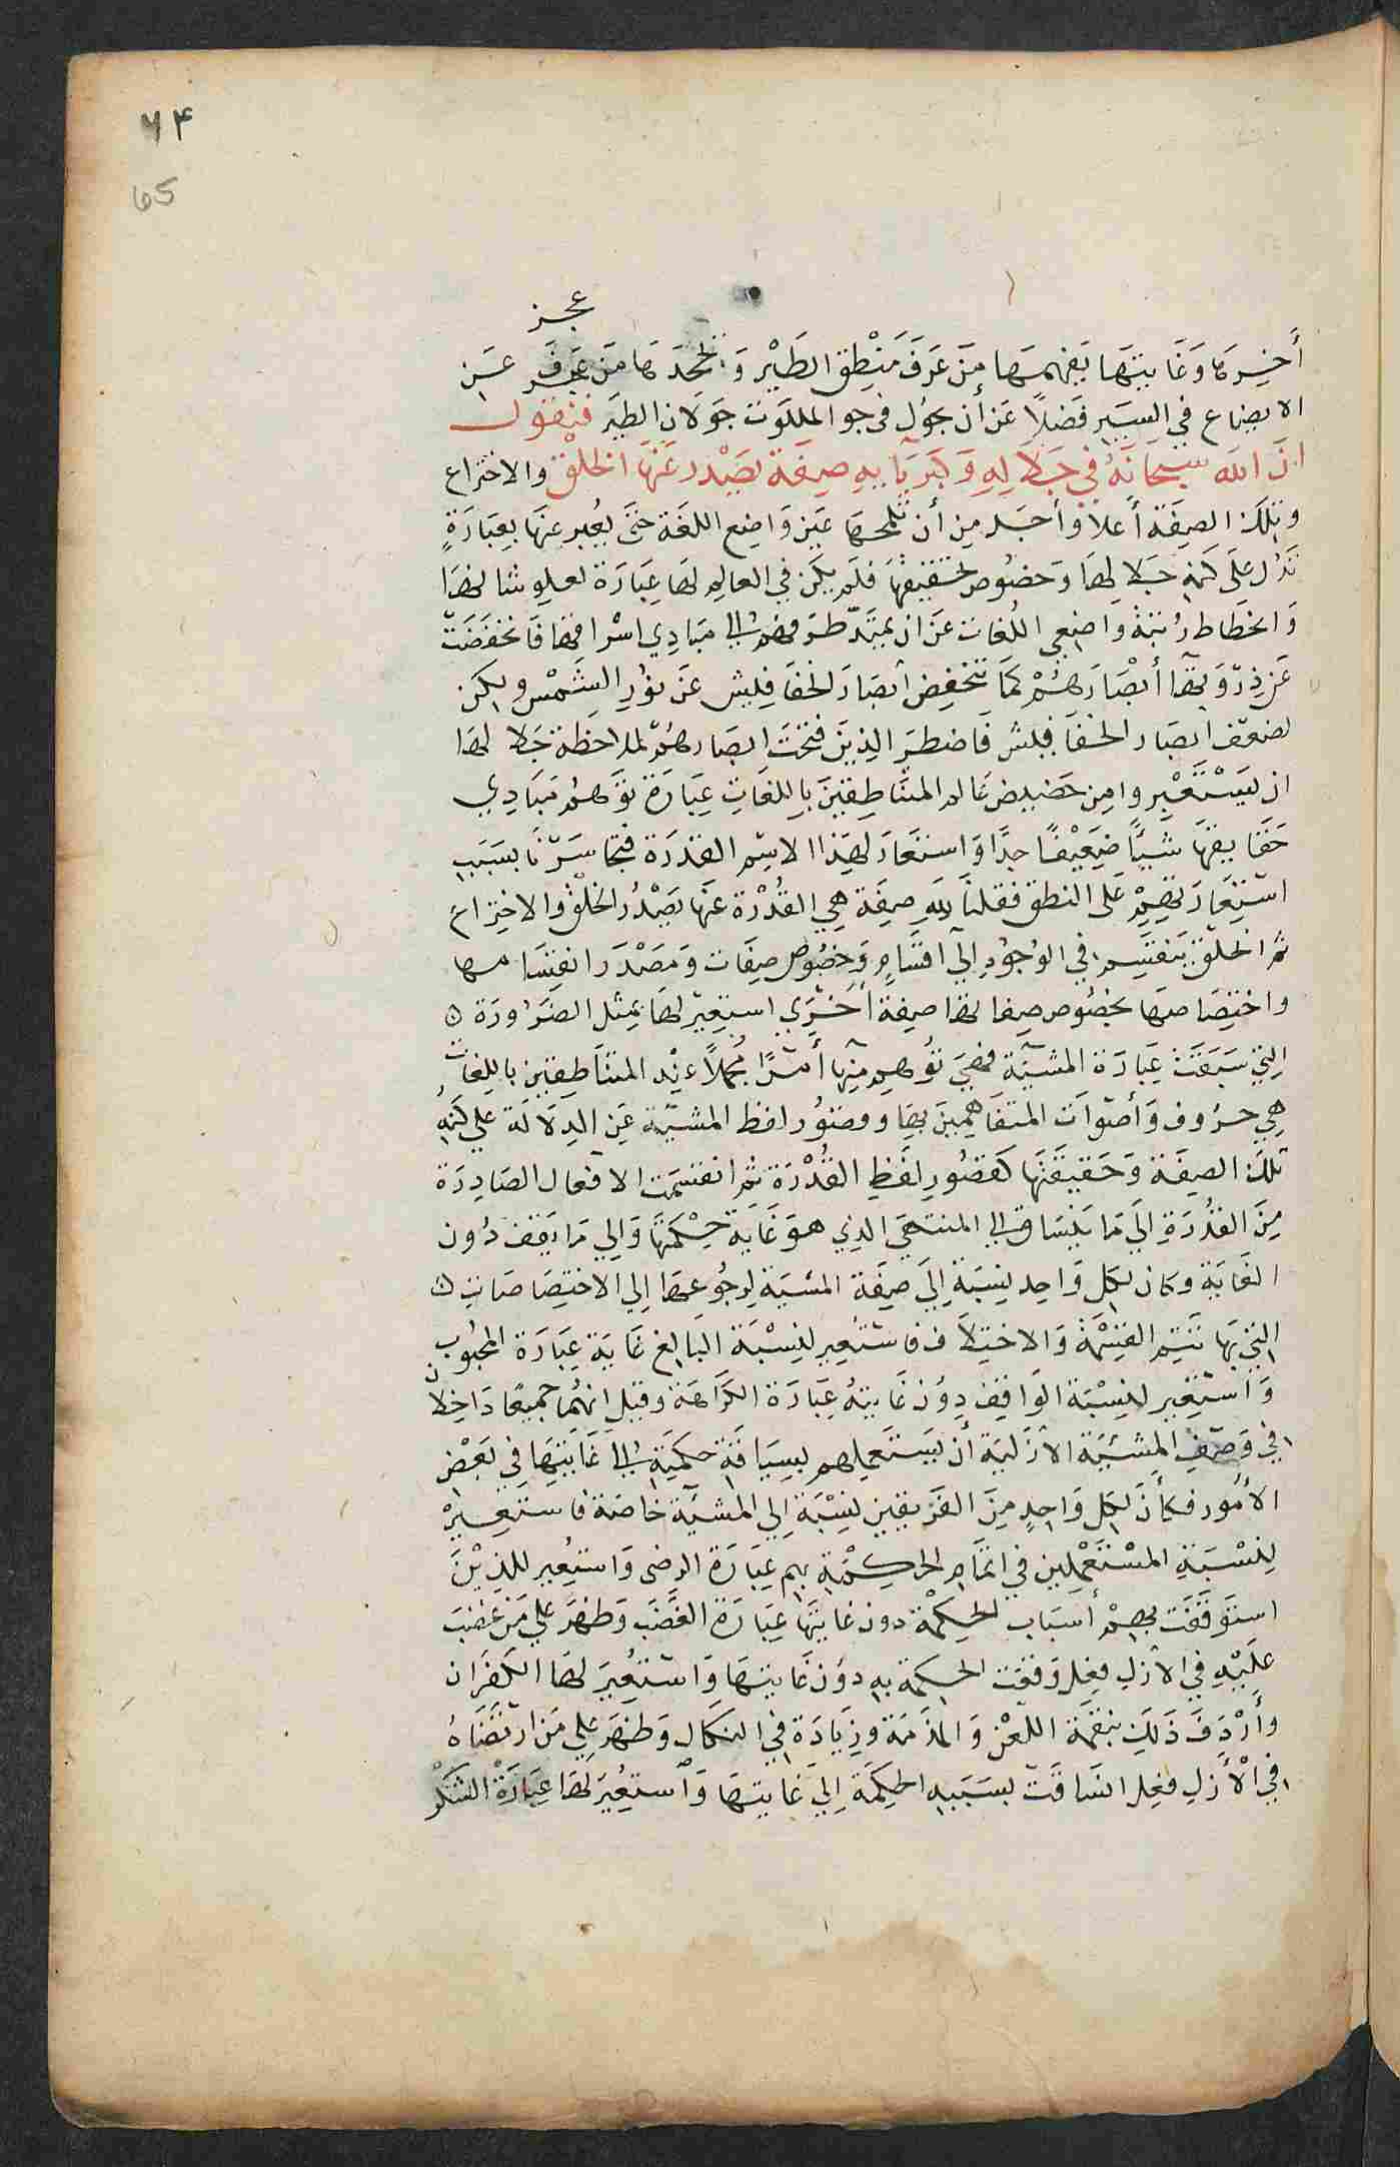 ٦۴
65
عجز
أَخِيرهَا وَغَايتهَا يَفهمهَا مَن عَرَفَ مَنْطِق الطَيْر وَيجحَدهَا مَن عجز عَن
الايضاع في السَير فَضلًا عَن أن يجُول في جو الملكوت جَوَلان الطير فنقول
انَ الله سبحانَهُ في جَلالِهِ وَكبريَايهِ صِفَة يَصْدر عَنهَا الخلق والاختراع
وتلك الصفَة أعلا وأجَل مِن أن تلمحهَا عَين وَاضِع اللغَة حَتى يعُبر عنهَا بعِبَارَةٍ
تدُل عَلَى كنهِ جَلالهَا وَخصُوص حَقيقتهَا فلَم يكن في العالم لهَا عِبَارَة لعلو شانهَا
وَانحطَاط رُتبَة واضعي اللُغات عَن ان يمتَدّ طرفهم الى مَبَادِي اشراقهَا فَانخفضَتْ
عَن ذِرْوَتهَا أبْصَارهُمْ كمَا تنخفِض أبصَار الخفَافِيش عَن نوُر الشَمْس ولكن
لضعف ابصَار الخفَافيش فَاضطرَ الذِينَ فتحَتَ ابصَارهُمْ لملاحظة جَلالهَا
ان يَسْتَعْيروا مِن حَضيض عَالم المتنَاطِقينَ بِاللغَاتِ عِبَارَة توُهم مَبَادِي
حَقَايقهَا شيئًا ضَعِيْفًا جِدًا وَاستعَارَ لهَذا الاسْم القدرَة فتجَاسَرنَا بسَبَب
اسْتِعَارَتهِمْ عَلى النطق فقلنَا للهِ صِفَة هِي القُدْرَة عنهَا يصْدُر الخلق والاختراع
ثم الخلق ينقسم في الوُجُودِ إلى اقسَامٍ وَخصُوص صِفَات وَمَصْدَر انقسَامها
واختصَاصهَا بخصُوص صِفاتهَا صِفَة أخرَي استعير لهَا بمثل الضرُورَة
التي سَبَقتْ عِبَارَة المشيّة فهيَ توُهم مِنهَا أمْرًا مجملًا عِنْد المتنَاطِقين باللغات
هِي حرُوف وَأصوات المتفَاهمينَ بهَا وقصوُر لفظ المشيّة عَن الدِلالَة علي كنهِ
تلكَ الصفَة وَحَقيقَتهَا كقصُور لفَظِ القُدْرَة ثم انقسَمت الافعال الصَادِرَة
مِنَ القدُرَةِ إلَى مَا يَنسَاق الى المنتهَى الذِي هوَ غَايَة حِكمَتهَا وَالي مَا يَقف دُون
الغَايَة وكان لكل وَاحِد نِسَبَة إلَى صِفَة المشيَة لرجُوعهَا إلى الاختصَاصَاتِ
التي بهَا تتم القِسْمَة وَالاختلَاف فاستُعير لنسْبَة البَالغ غَايَة عِبَارَة المحبُوب
وَاستعير لنِسْبَة الوَاقف دوُن غَايتهُ عِبَارَة الكرَاهَة وقيل انهُما جميعًا دَاخلان
في وَصف المشيَة الازَليَة أن يَستعملهم لسِيَاقَةِ حكمتهِ الى غَايَتِهَا في بَعض
الأمُور فكأنَ لكل وَاحِدٍ مِنَ الفَرِيقين نِسْبَة إلى المشيَّة خاصَة فاستعيرْ
لِنسْبَةِ المسْتَعْمَلين في اتمَامِ الحِكمَة بهم عِبَارَة الرضى وَاستعُير للذِيْنَ
استَوقفَت بهِمْ أسبَاب الحِكمَة دون غَايتهَا عِبَارَة الغضَب وَظهَر علي مَن غضب
عَليْهِ في الأزلِ فِعل وَقفت الحِكمَة بهِ دوُن غَايتهَا وَاستعُيرَ لهَا الكفرَان
وأرْدَفَ ذَلكَ بنقمَة اللعْن وَالمذمَة وزِيَادَة في النكَال وَظهَر علي مَن ارتضَاهُ
في الأزلِ فِعل انسَاقَتْ بسَببهِ الحِكمَة إلي غَايتهَا وَاستعُيرَ لهَا عِبَارَة الشكر